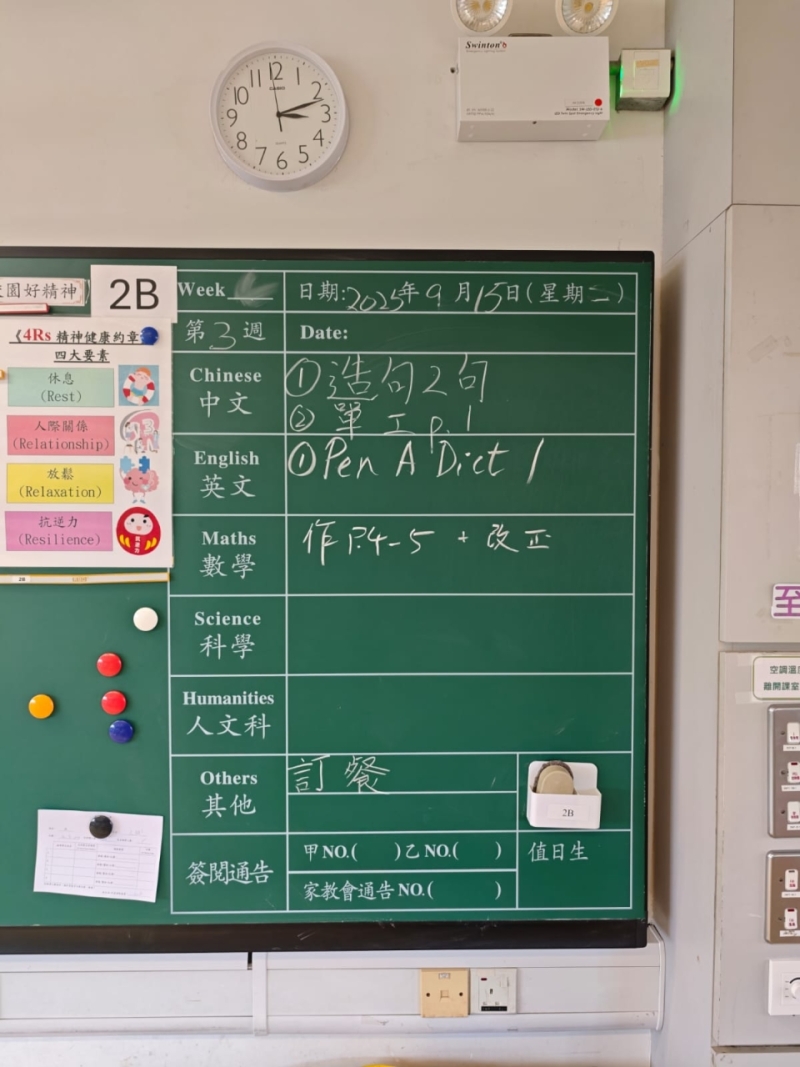 Swinton
12 1 2 3 4 5 6 7 8 9 10 11
園好精神
2B
Week
日期:2025年9月15日(星期二)
第3週
Date:
《4Rs 精神健康約章
四大要素
休息
(Rest)
人際關係
(Relationship)
放鬆
(Relaxation)
抗逆力
(Resilience)
Chinese
中文
①造句2句
②單工 p.1
English
英文
①Pen A Dict 1
Maths
數學
作 P.4-5 + 改正
Science
科學
Humanities
人文科
Others
其他
訂餐
2B
簽閱通告
甲NO.( )乙NO.( )
家教會通告NO.( )
值日生
2B
至
空調溫
離開課室